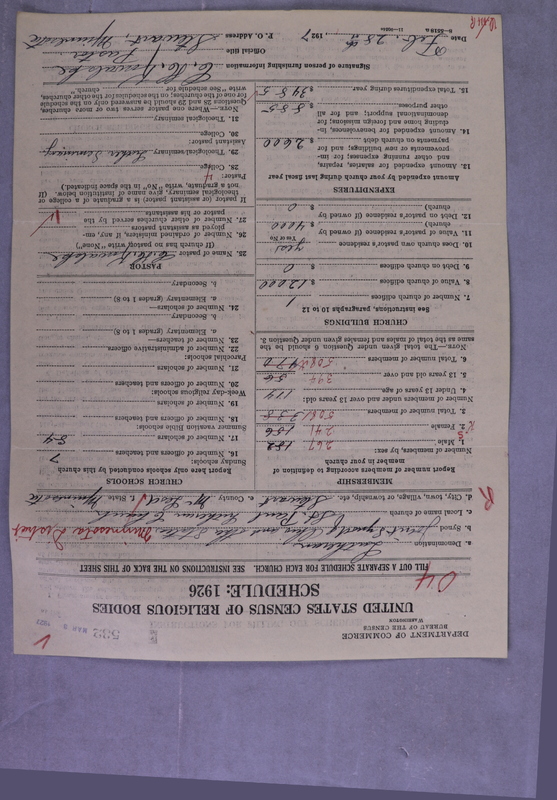 DEPARTMENT OF COMMERCE
BUREAU OF THE CENSUS
WASHINGTON
532
MAR 5 1927
UNITED STATES CENSUS OF RELIGIOUS BODIES
SCHEDULE: 1926
04
FILL OUT A SEPARATE SCHEDULE FOR EACH CHURCH. SEE INSTRUCTIONS ON THE BACK OF THIS SHEET
a. Denomination Lutheran
b. Synod Joint Synod Ohio and other States Minnesota District
c. Local name of church St. Paul Lutheran Church
d. City, town, village, or township, etc. Stewart e. County Mc Leod f. State Minnesota
R
MEMBERSHIP
Report number of members according to definition of member in your church
Number of members, by sex:
1. Male 267 182
2. Female 241 156
3. Total number of members 508 338
Number of members under and over 13 years old:
4. Under 13 years of age 114
5. 13 years old and over 244 56
6. Total number of members 508 470
NOTE.—The total given under Question 6 should be the same as the total of males and females given under Question 3.
CHURCH BUILDINGS
See instructions, paragraphs 10 to 12
7. Number of church edifices 1
8. Value of church edifices $ 12000
9. Debt on church edifices $ 0
10. Does church own pastor's residence yes
(Yes or No)
11. Value of pastor's residence (if owned by church) $ 4000
12. Debt on pastor's residence (if owned by church) $ 0
EXPENDITURES
Amount expended by your church during last fiscal year
13. Amount expended for salaries, repairs, and other running expenses; for improvements or new building; and for payments on church debt $ 2600
14. Amount expended for benevolences, including home and foreign missions; for denominational support; and for all other purposes $ 885
15. Total expenditures during year $ 3485
CHURCH SCHOOLS
Report here only schools conducted by this church
Sunday Schools:
16. Number of officers and teachers 7
17. Number of scholars 54
Summer vacation Bible schools:
18. Number of officers and teachers
19. Number of scholars
Week-day religious schools:
20. Number of officers and teachers
21. Number of scholars
Parochial schools:
22. Number of administrative officers
23. Number of teachers—
a. Elementary (grades 1 to 8)
b. Secondary
24. Number of scholars—
a. Elementary (grades 1 to 8)
b. Secondary
PASTOR
25. Name of pastor
(If church has no pastor write "None")
26. Number of ordained ministers, if any, employed as assistants
27. Number of other churches served by the pastor or his assistants 1
If pastor (or assistant pastor) is a graduate of a college or theological seminary, give name of institution below. (If not a graduate, write "No" in the space indicated.)
Pastor:
28. College
29. Theological seminary Luther Seminary
Assistant pastor:
30. College
31. Theological seminary
NOTE.—Where one pastor serves two or more churches, Questions 28 and 29 should be answered only on the schedule for one of the churches; on the schedules for the other churches, write "See schedule for church."
Signature of person furnishing information
Official title Pastor
P. O. Address Stewart, Minnesota
Date Feb. 28th, 1927